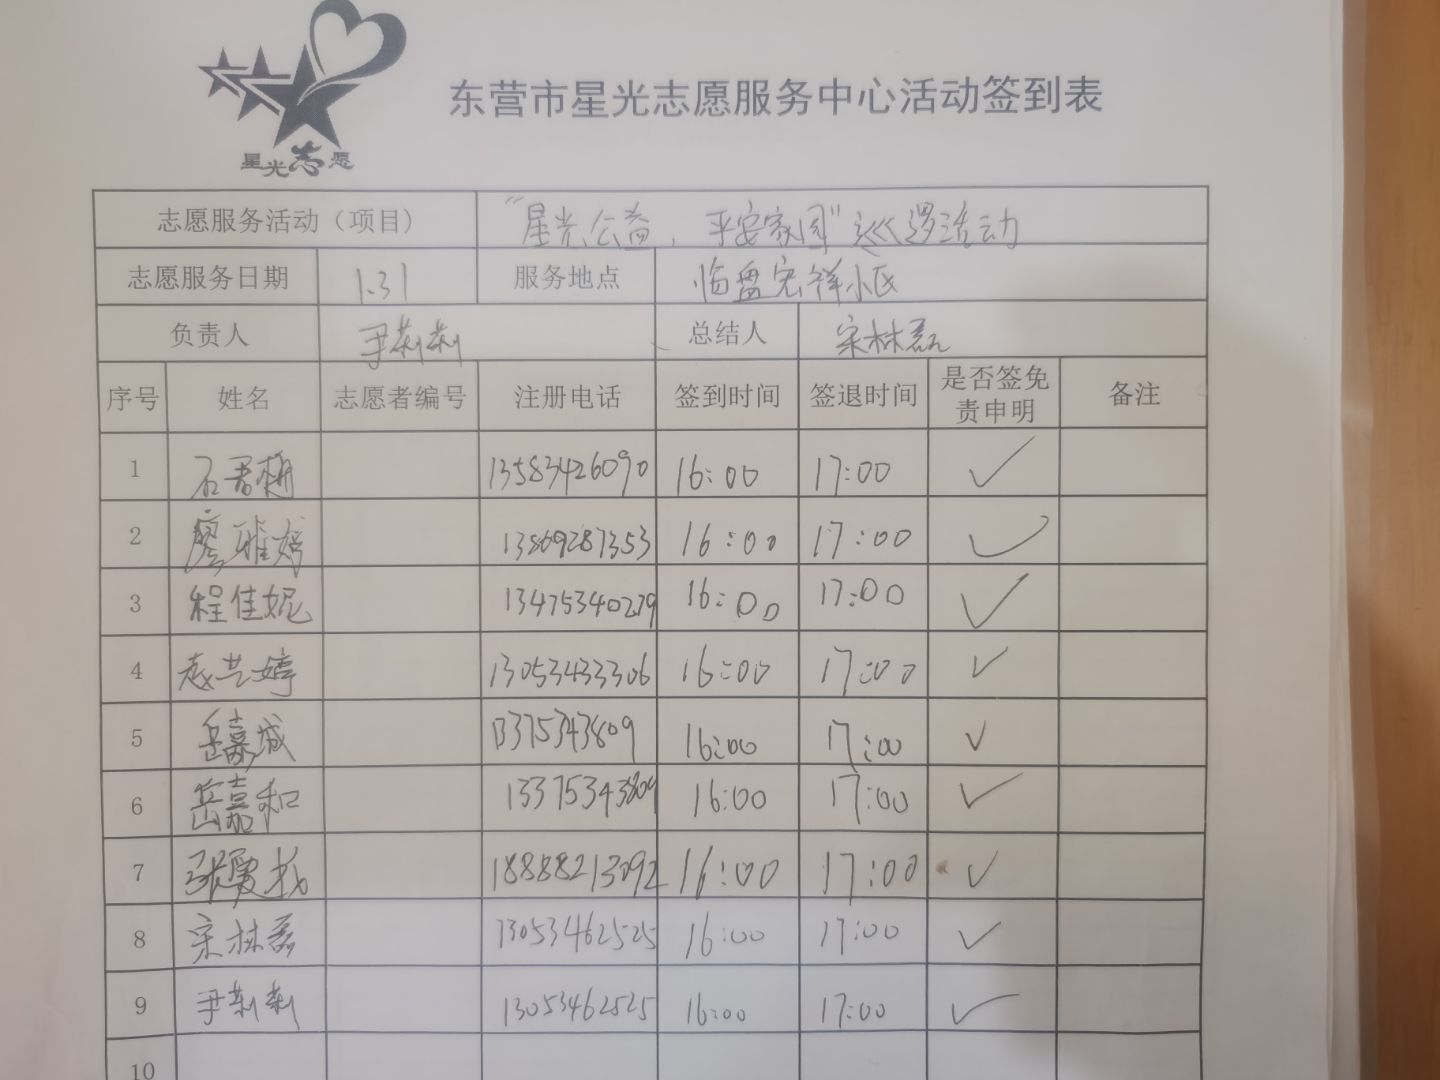 星光志愿
东营市星光志愿服务中心活动签到表
志愿服务活动（项目） “星光公益，平安家园”巡逻活动
志愿服务日期 1.31 服务地点 临盘宏祥小区
负责人 尹莉莉 总结人 宋林磊
序号 姓名 志愿者编号 注册电话 签到时间 签退时间 是否签免责申明 备注
1 13583426090 16:00 17:00 ✓
2 廖雅婷 13869287353 16:00 17:00 ✓
3 程佳妮 13475340279 16:00 17:00 ✓
4 13053433306 16:00 17:00 ✓
5 岳嘉城 13375343809 16:00 17:00 ✓
6 岳嘉和 13375343809 16:00 17:00 ✓
7 18888213092 16:00 17:00 ✓
8 宋林磊 13053462525 16:00 17:00 ✓
9 尹莉莉 13053462525 16:00 17:00 ✓
10